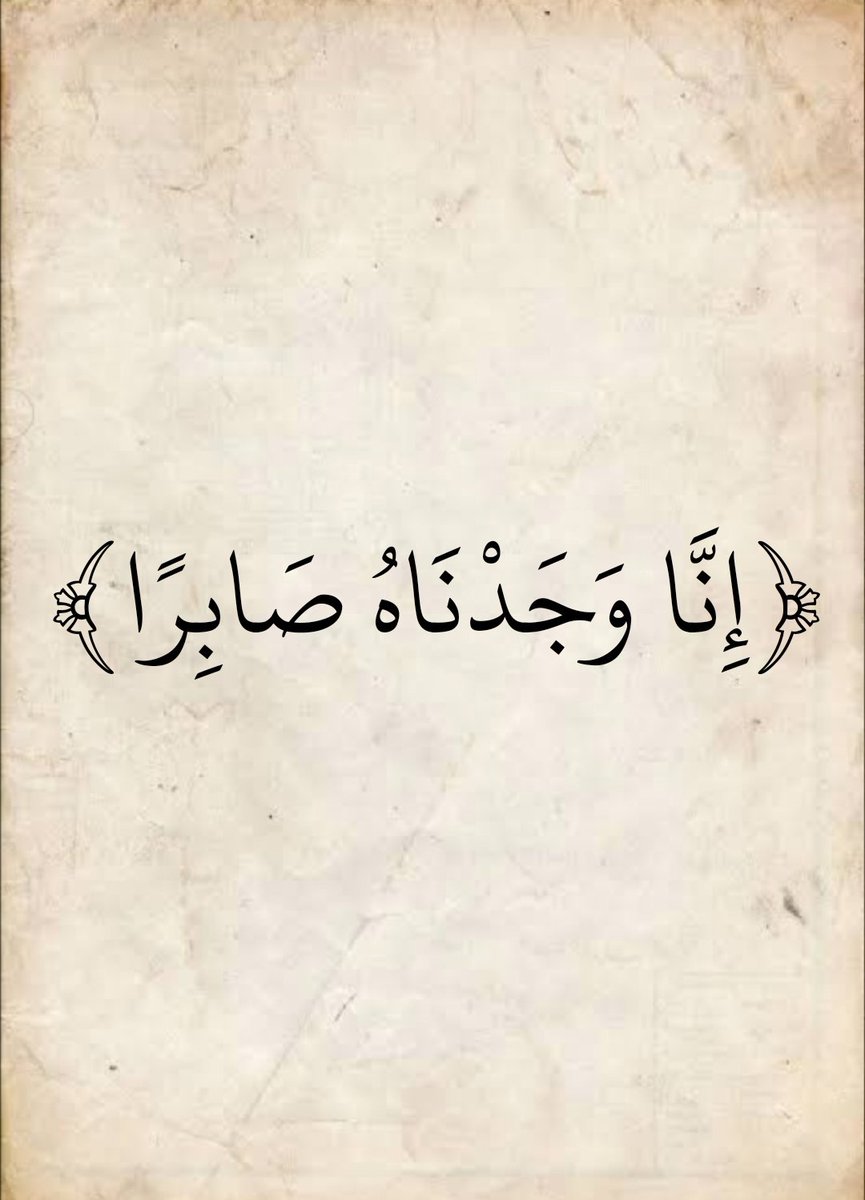 ﴿إِنَّا وَجَدْنَاهُ صَابِرًا﴾